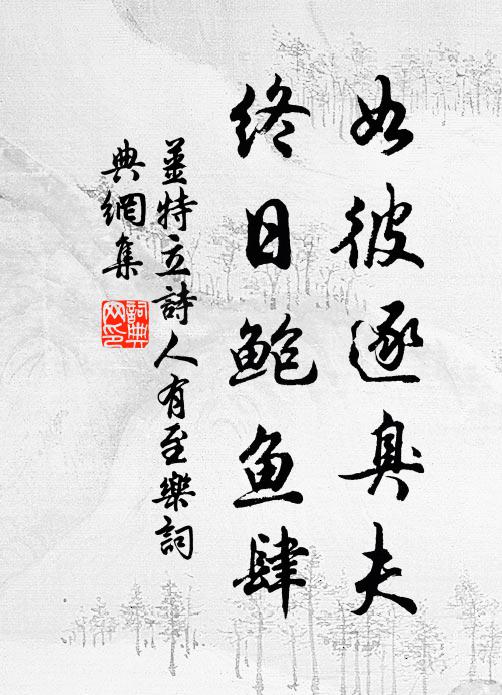 如彼逐臭夫
終日鲍鱼肆
姜特立詩人有至樂詞
典網集
詞典网印